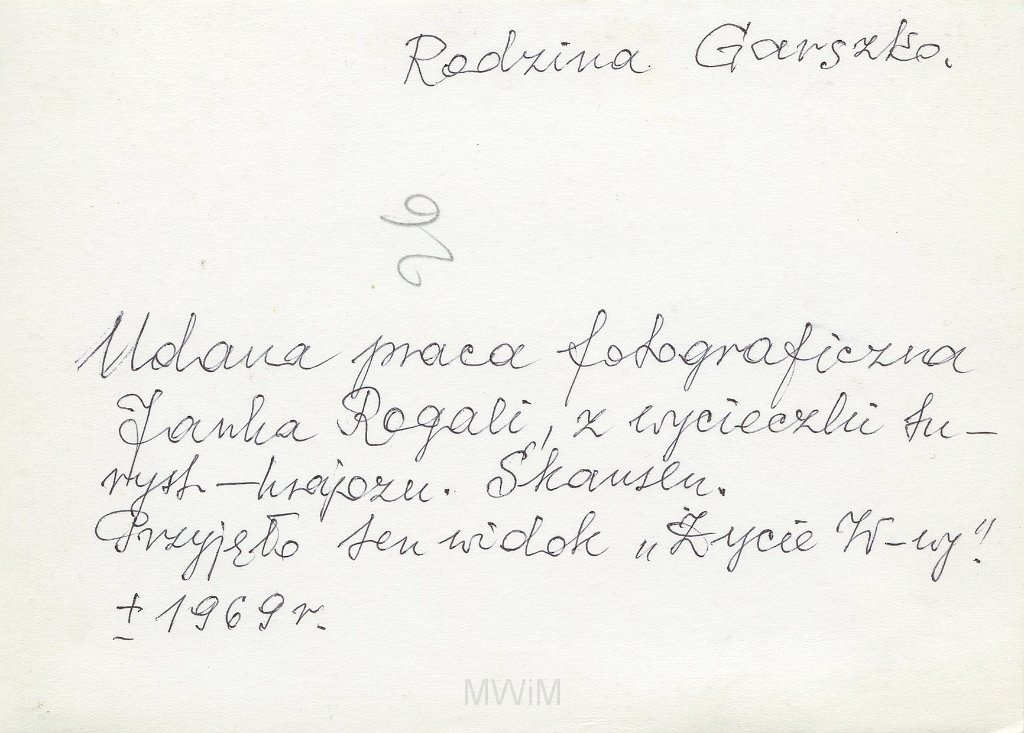 Rodzina Garszko.
Udana praca fotograficzna
Janka Rogali, z wycieczki tu-
ryst-krajozn. Skansen.
Przyjęło ten widok „Życie W-wy"!
± 1969 r.
MWiM